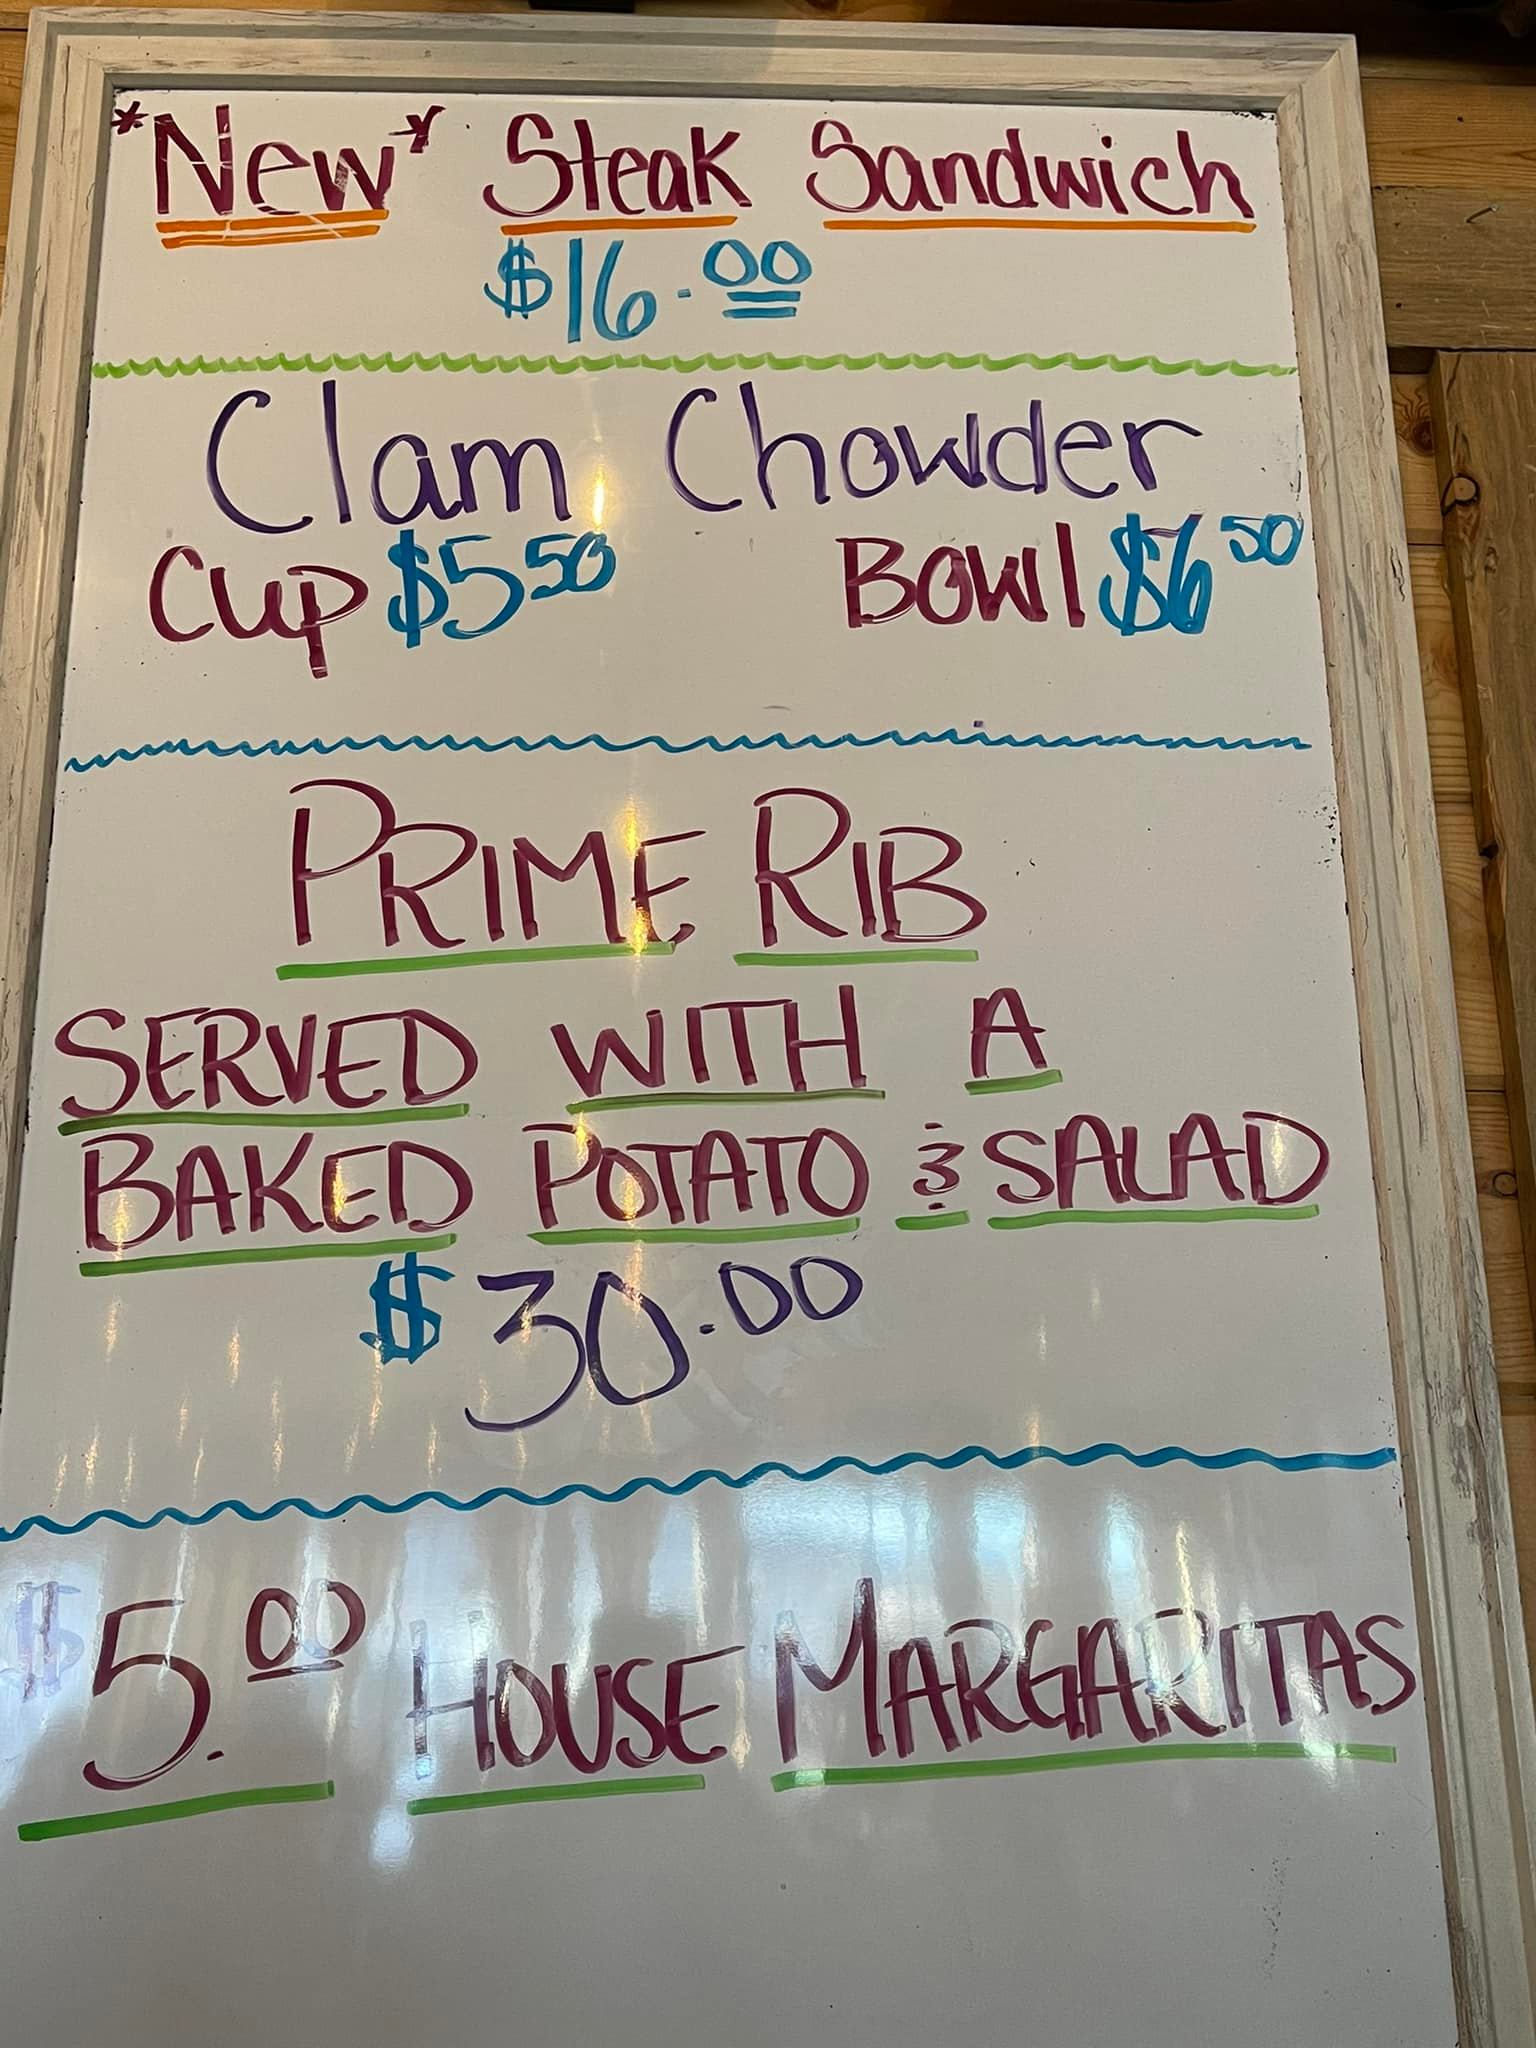 *New* Steak Sandwich
$16.00
Clam Chowder
Cup $5.50 Bowl $6.50
PRIME RIB
SERVED WITH A
BAKED POTATO & SALAD
$30.00
$5.00 HOUSE MARGARITAS